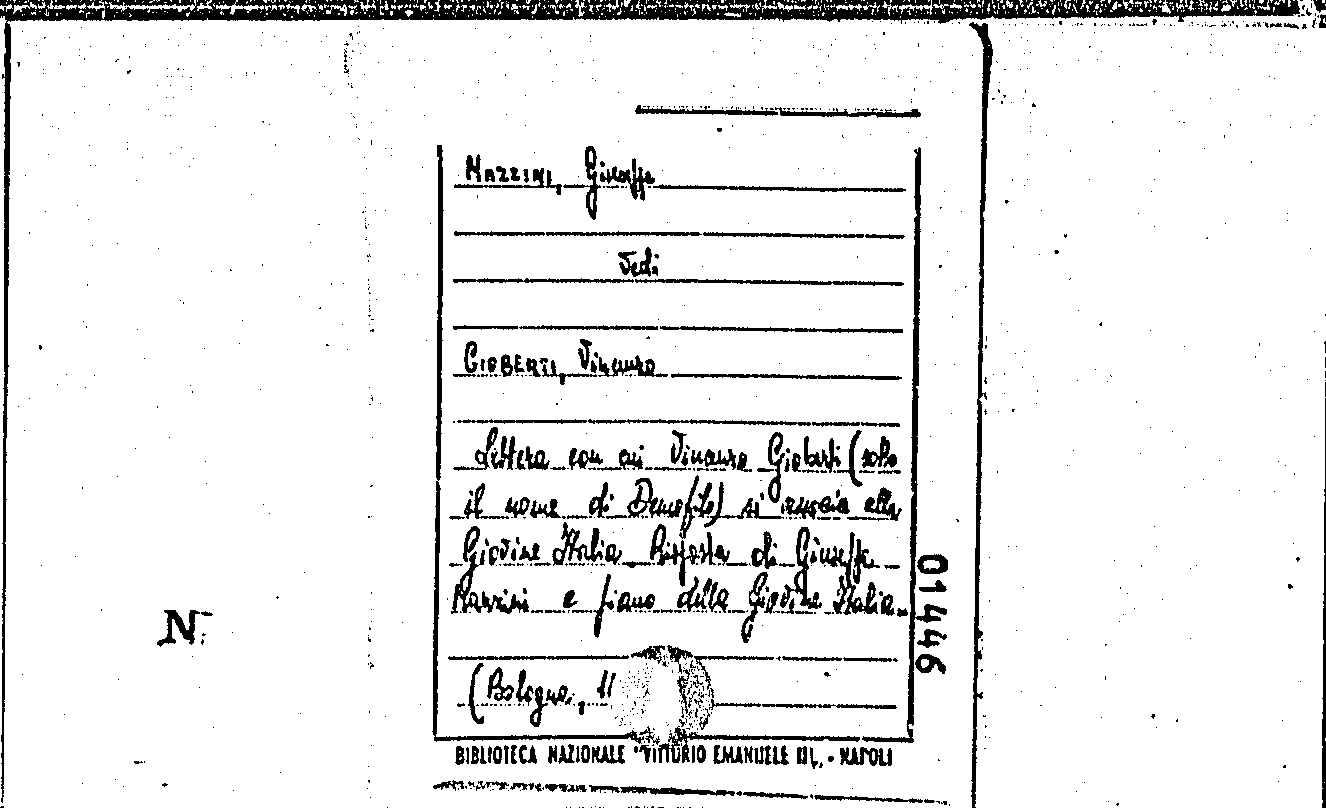 MAZZINI, Giuseppe
Vedi
GIOBERTI, Vincenzo
Lettera con cui Vincenzo Gioberti (sotto
il nome di Demofilo) si associa alla
Giovine Italia. Risposta di Giuseppe
Mazzini e piano della Giovine Italia.
(Bologna, 1
BIBLIOTECA NAZIONALE "VITTORIO EMANUELE III" - NAPOLI
01446
N.